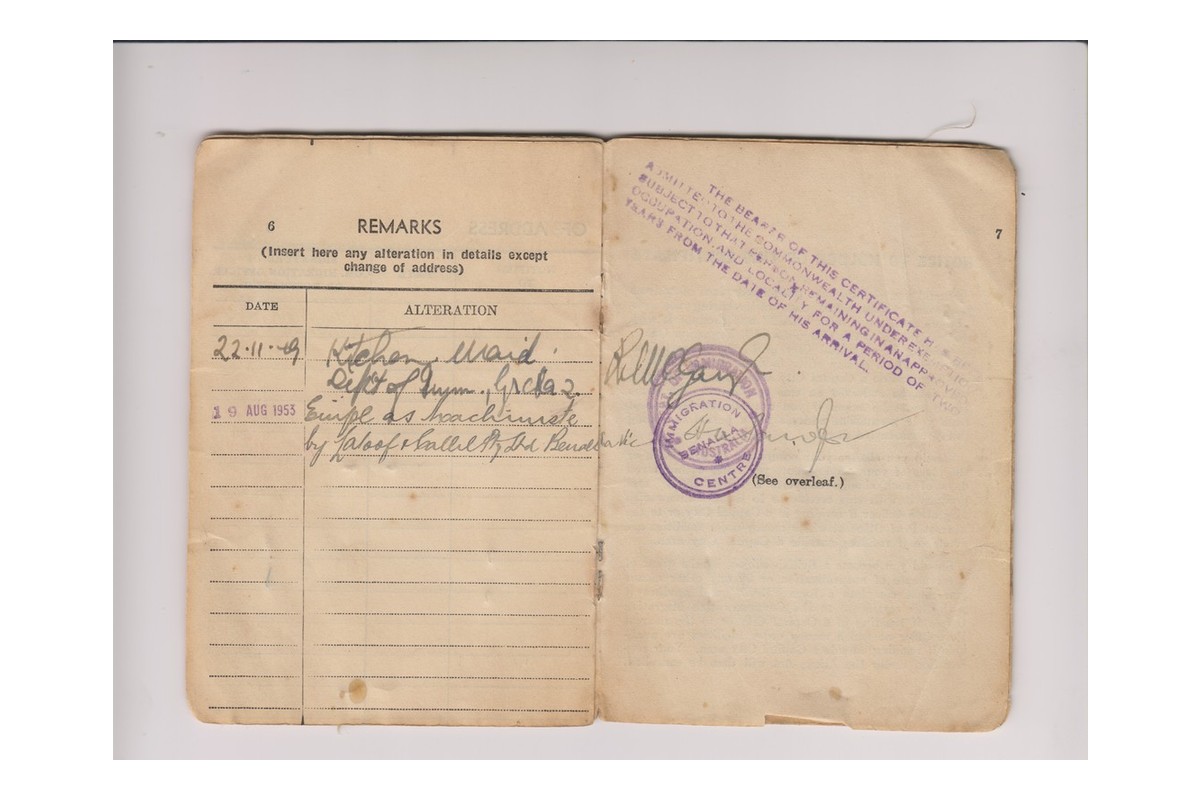 6
REMARKS
(Insert here any alteration in details except
change of address)
DATE
ALTERATION
22·11·49
Kitchen Maid
Dept of Imm., Greta 2.
19 AUG 1953
Empl as Machiniste
by Latoof & Callil Pty Ltd Benalla Vic
7
THE BEARER OF THIS CERTIFICATE
ADMITTED TO THE COMMONWEALTH UNDER
SUBJECT TO THAT PERSON REMAINING IN AN APPROVED
OCCUPATION AND LOCALITY FOR A PERIOD OF TWO
YEARS FROM THE DATE OF HIS ARRIVAL.
IMMIGRATION
AUSTRALIA
IMMIGRATION
BENALLA
CENTRE
(See overleaf.)